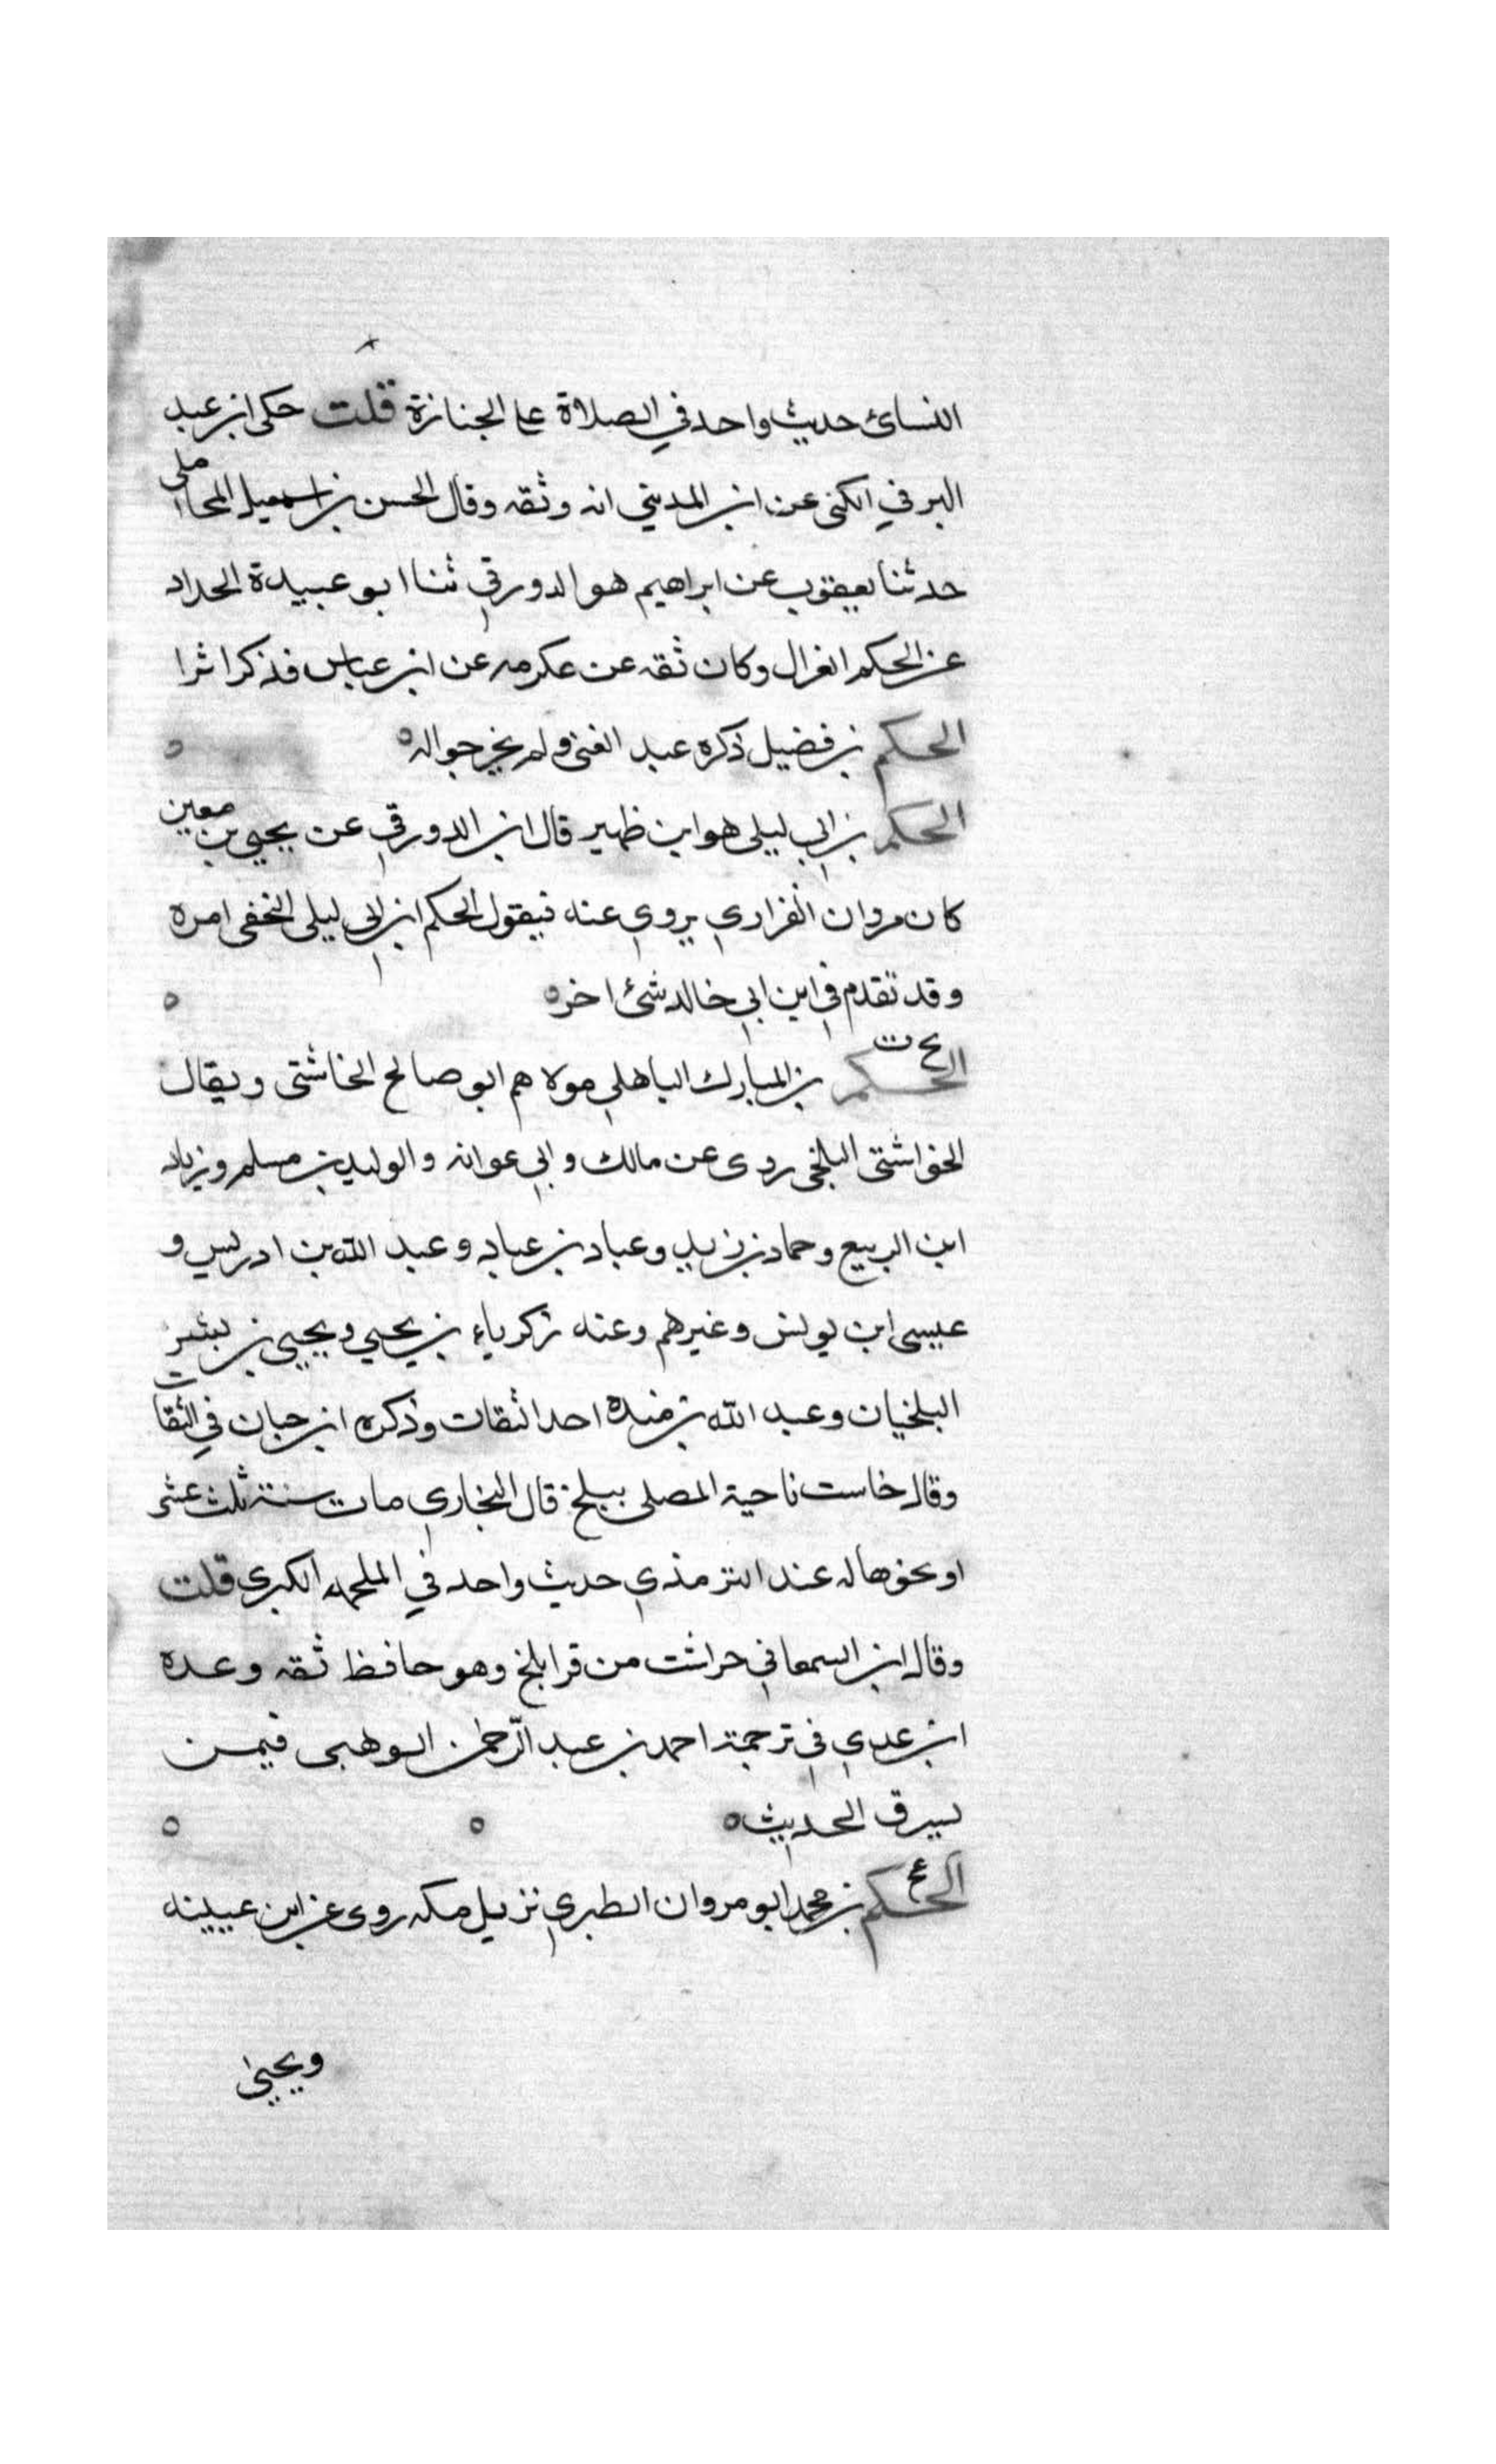 النسائ حديث واحد في الصلاة على الجنازة قلت حكى ابن عبد
البر في الكنى عن ابن المديني انه وثقه وقال الحسن بن اسمعيل المحاملي
حدثنا يعقوب عن ابراهيم هو الدورقي ثنا ابو عبيدة الحداد
عن الحكم الغزال وكان ثقه عن عكرمه عن ابن عباس فذكر اثرا
الحكم بن فضيل ذكره عبد الغنى ولم يخرجوا له ه ه
الحكم بن ابي ليلى هو ابن ظهير قال ابن الدورقي عن يحيى بن معين
كان مروان الفزاري يروي عنه فيقول الحكم ابن ابي ليلى النخفى امره
وقد تقدم في ابن ابي خالد شئ اخر ه ه
خ ت
الحكم بن المبارك الباهلي مولاهم ابو صالح الخاشتى ويقال
الخواشتى البلخي روى عن مالك وابي عوانه والوليد بن مسلم وزياد
ابن الربيع وحماد بن زيد وعباد بن عباد وعبد الله بن ادريس و
عيسى ابن يونس وغيرهم وعنه زكرياء بن يحيي ويحيى بن بشر
البلخيان وعبد الله بن منده احد الثقات وذكره ابن حبان في الثقات
وقال خاست ناحية المصلى ببلخ قال البخاري مات سنة ثلث عشر
او نحوها له عند الترمذي حديث واحد في الملحمه الكبرى قلت
وقال ابن السمعاني حراشت من قرا بلخ وهو حافظ ثقه وعده
ابن عدي في ترجمة احمد بن عبد الرّحمن الوهبى فيمن
يسرق الحديث ه ه ه
ع
الحكم بن محمد ابو مروان الطبري نزيل مكه روى عن ابن عيينه
ويحيى